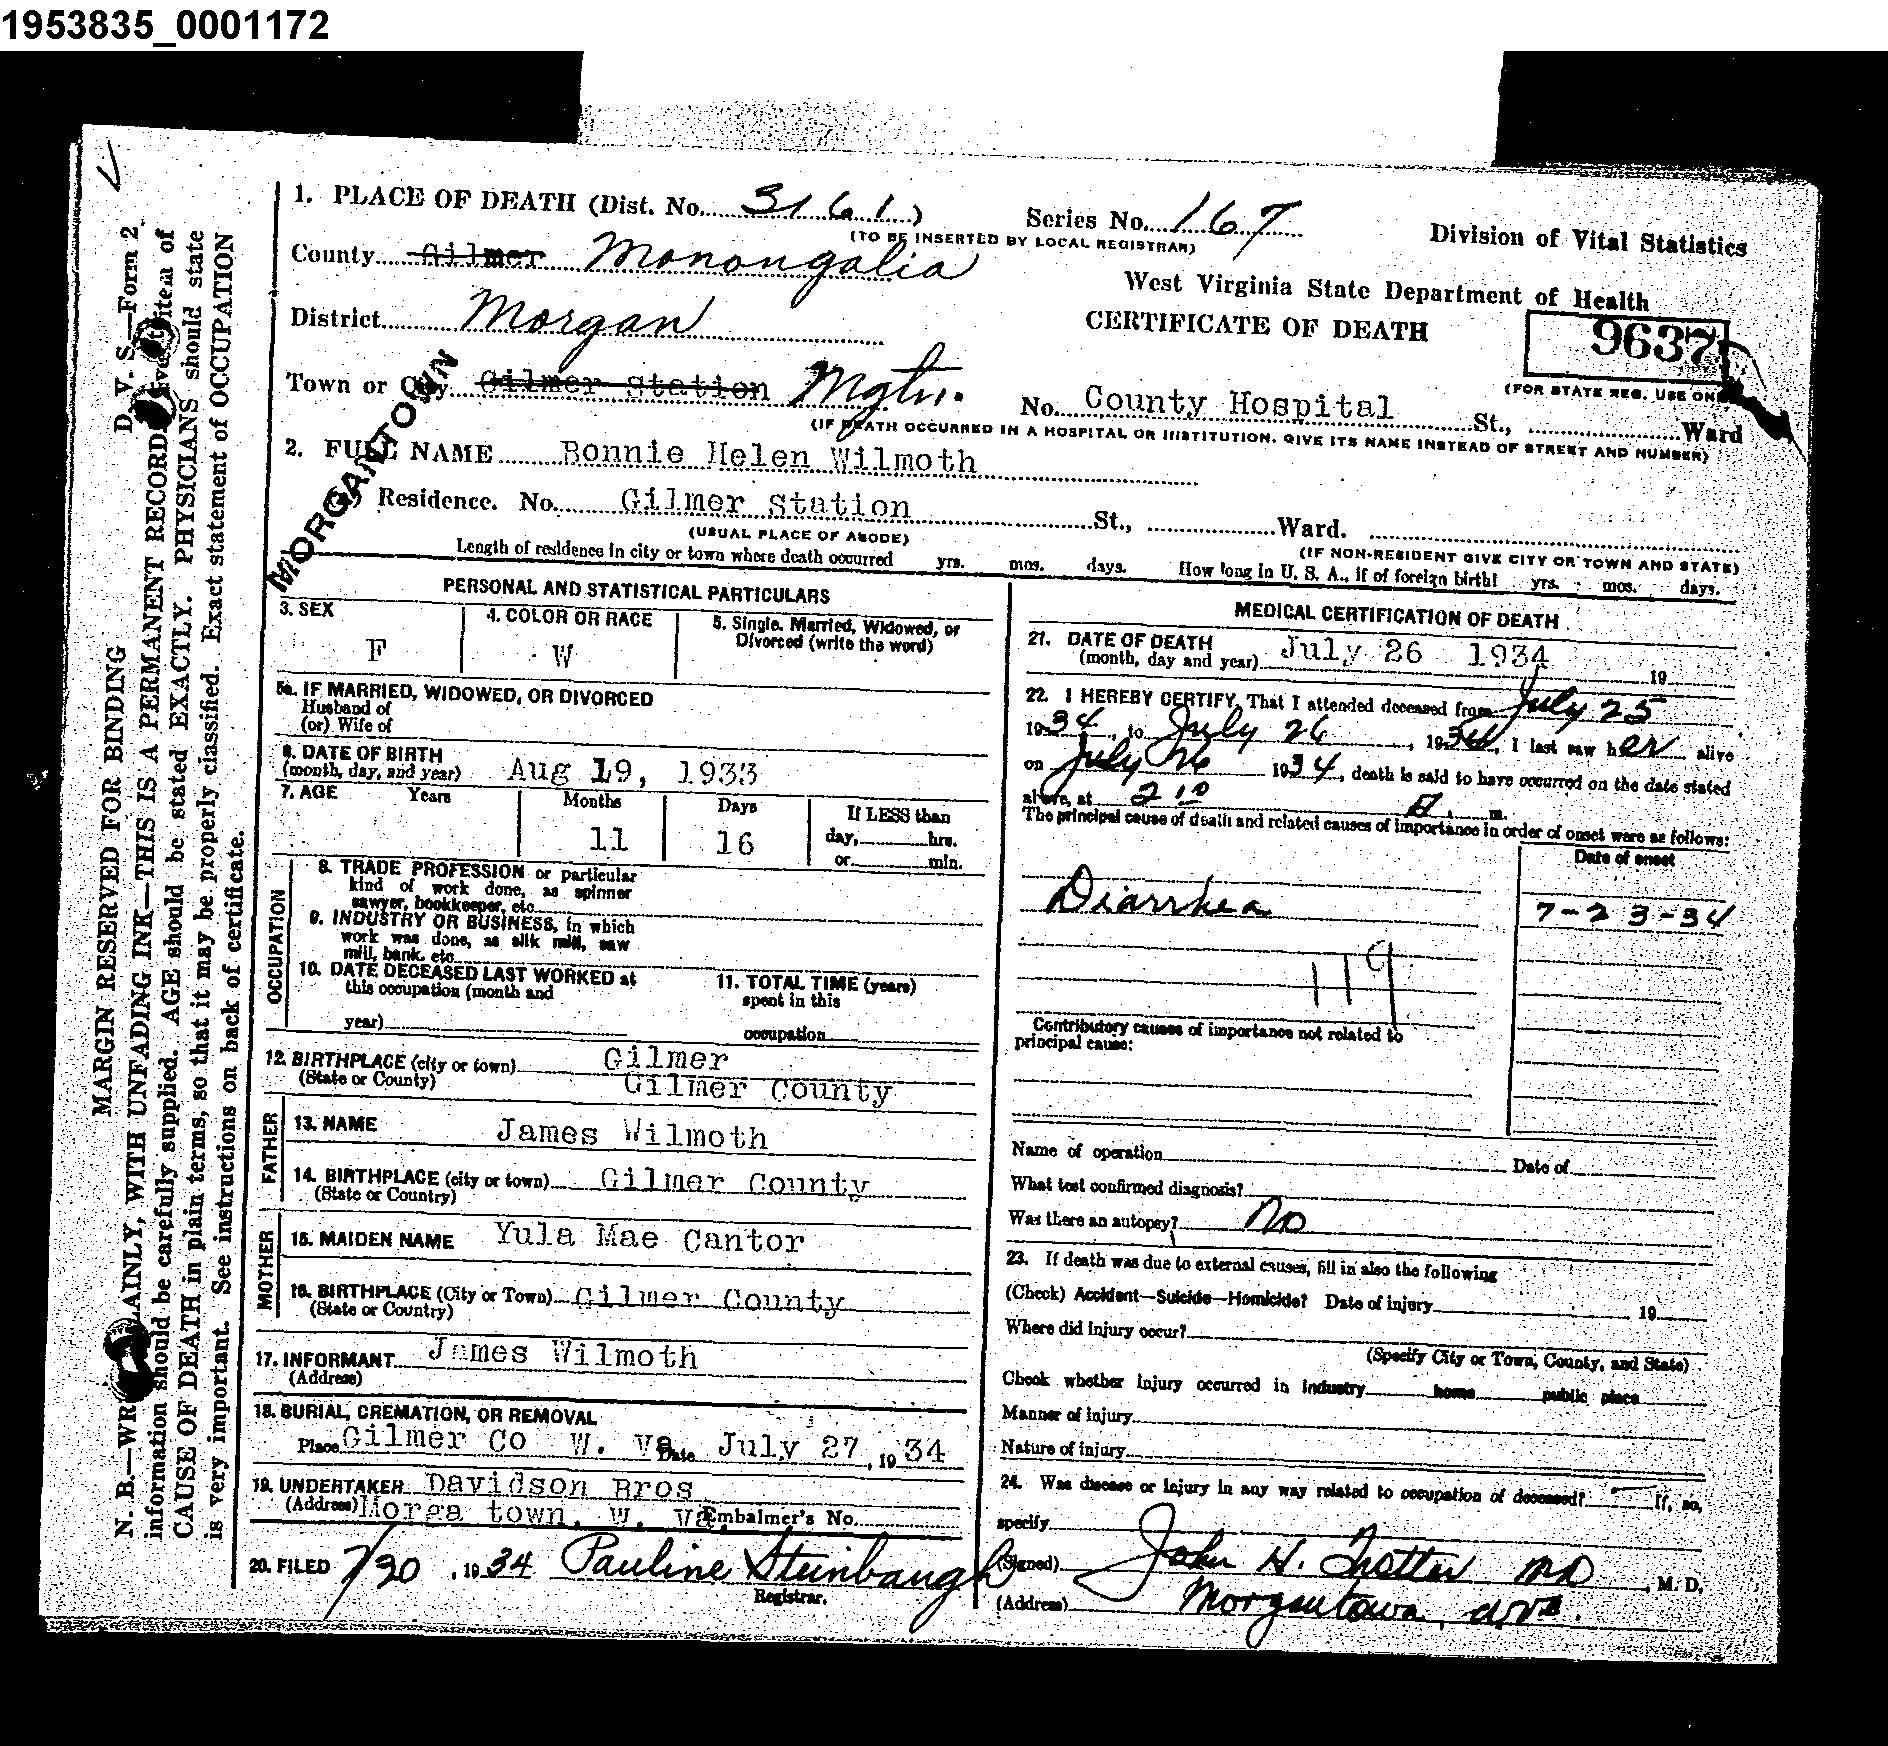 1953835_0001172
1. PLACE OF DEATH (Dist. No. 3161)
Series No. 167
(TO BE INSERTED BY LOCAL REGISTRAR)
Division of Vital Statistics
County Gilmer Monongalia
West Virginia State Department of Health
District Morgan
CERTIFICATE OF DEATH
9637
(FOR STATE REG. USE ONLY)
Town or City Gilmer Station Mgtn.
No. County Hospital St., Ward
(IF DEATH OCCURRED IN A HOSPITAL OR INSTITUTION, GIVE ITS NAME INSTEAD OF STREET AND NUMBER)
MORGANTOWN
2. FULL NAME Bonnie Helen Wilmoth
Residence. No. Gilmer Station St., Ward.
(USUAL PLACE OF ABODE)
(IF NON-RESIDENT GIVE CITY OR TOWN AND STATE)
Length of residence in city or town where death occurred yrs. mos. days. How long in U. S. A., if of foreign birth! yrs. mos. days.
PERSONAL AND STATISTICAL PARTICULARS
3. SEX
F
4. COLOR OR RACE
W
5. Single, Married, Widowed, or
Divorced (write the word)
5a. IF MARRIED, WIDOWED, OR DIVORCED
Husband of
(or) Wife of
6. DATE OF BIRTH
(month, day, and year) Aug 19, 1933
7. AGE Years
Months
11
Days
16
If LESS than
day, hrs.
or min.
OCCUPATION
8. TRADE PROFESSION or particular
kind of work done, as spinner
sawyer, bookkeeper, etc
9. INDUSTRY OR BUSINESS, in which
work was done, as silk mill, saw
mill, bank, etc
10. DATE DECEASED LAST WORKED at
this occupation (month and
year)
11. TOTAL TIME (years)
spent in this
occupation
12. BIRTHPLACE (city or town) Gilmer
(State or County) Gilmer County
FATHER
13. NAME James Wilmoth
14. BIRTHPLACE (city or town) Gilmer County
(State or Country)
MOTHER
15. MAIDEN NAME Yula Mae Cantor
16. BIRTHPLACE (City or Town) Gilmer County
(State or Country)
17. INFORMANT James Wilmoth
(Address)
18. BURIAL, CREMATION, OR REMOVAL
Place Gilmer Co W. Va Date July 27, 1934
19. UNDERTAKER Davidson Bros
(Address) Morga town, W. Va Embalmer's No.
20. FILED 7/30, 1934 Pauline Steinbaugh
Registrar.
MEDICAL CERTIFICATION OF DEATH
21. DATE OF DEATH
(month, day and year) July 26 1934 19
22. I HEREBY CERTIFY, That I attended deceased from July 25
1934, to July 26, 1934, I last saw her alive
on July 26 1934, death is said to have occurred on the date stated
above, at 2 10 A. m.
The principal cause of death and related causes of importance in order of onset were as follows:
Date of onset
Diarrhea 7-23-34
119
Contributory causes of importance not related to
principal cause:
Name of operation Date of
What test confirmed diagnosis?
Was there an autopsy? No
23. If death was due to external causes, fill in also the following
(Check) Accident—Suicide—Homicide? Date of injury 19
Where did injury occur?
(Specify City or Town, County, and State)
Check whether injury occurred in industry home public place
Manner of injury
Nature of injury
24. Was disease or injury in any way related to occupation of deceased? If, so,
specify
(Signed) John H. Trotter MD, M. D.
(Address) Morgantown, W Va.
D. V. S.—Form 2
MARGIN RESERVED FOR BINDING
N. B.—WRITE PLAINLY, WITH UNFADING INK—THIS IS A PERMANENT RECORD. Every item of
information should be carefully supplied. AGE should be stated EXACTLY. PHYSICIANS should state
CAUSE OF DEATH in plain terms, so that it may be properly classified. Exact statement of OCCUPATION
is very important. See instructions on back of certificate.